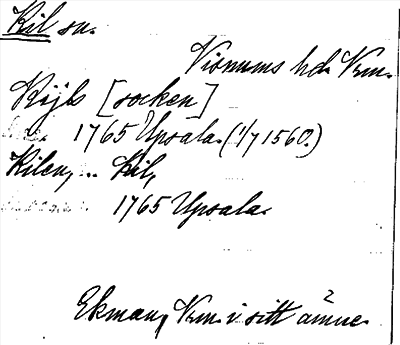 Kil sn.
Visnums hd. Vrm.
Kijls [socken]
1765 Upsala. (1/7 1560.)
Kilen, .. Kil,
1765 Upsala.
Ekman, Vrm. i sitt ämne. 2